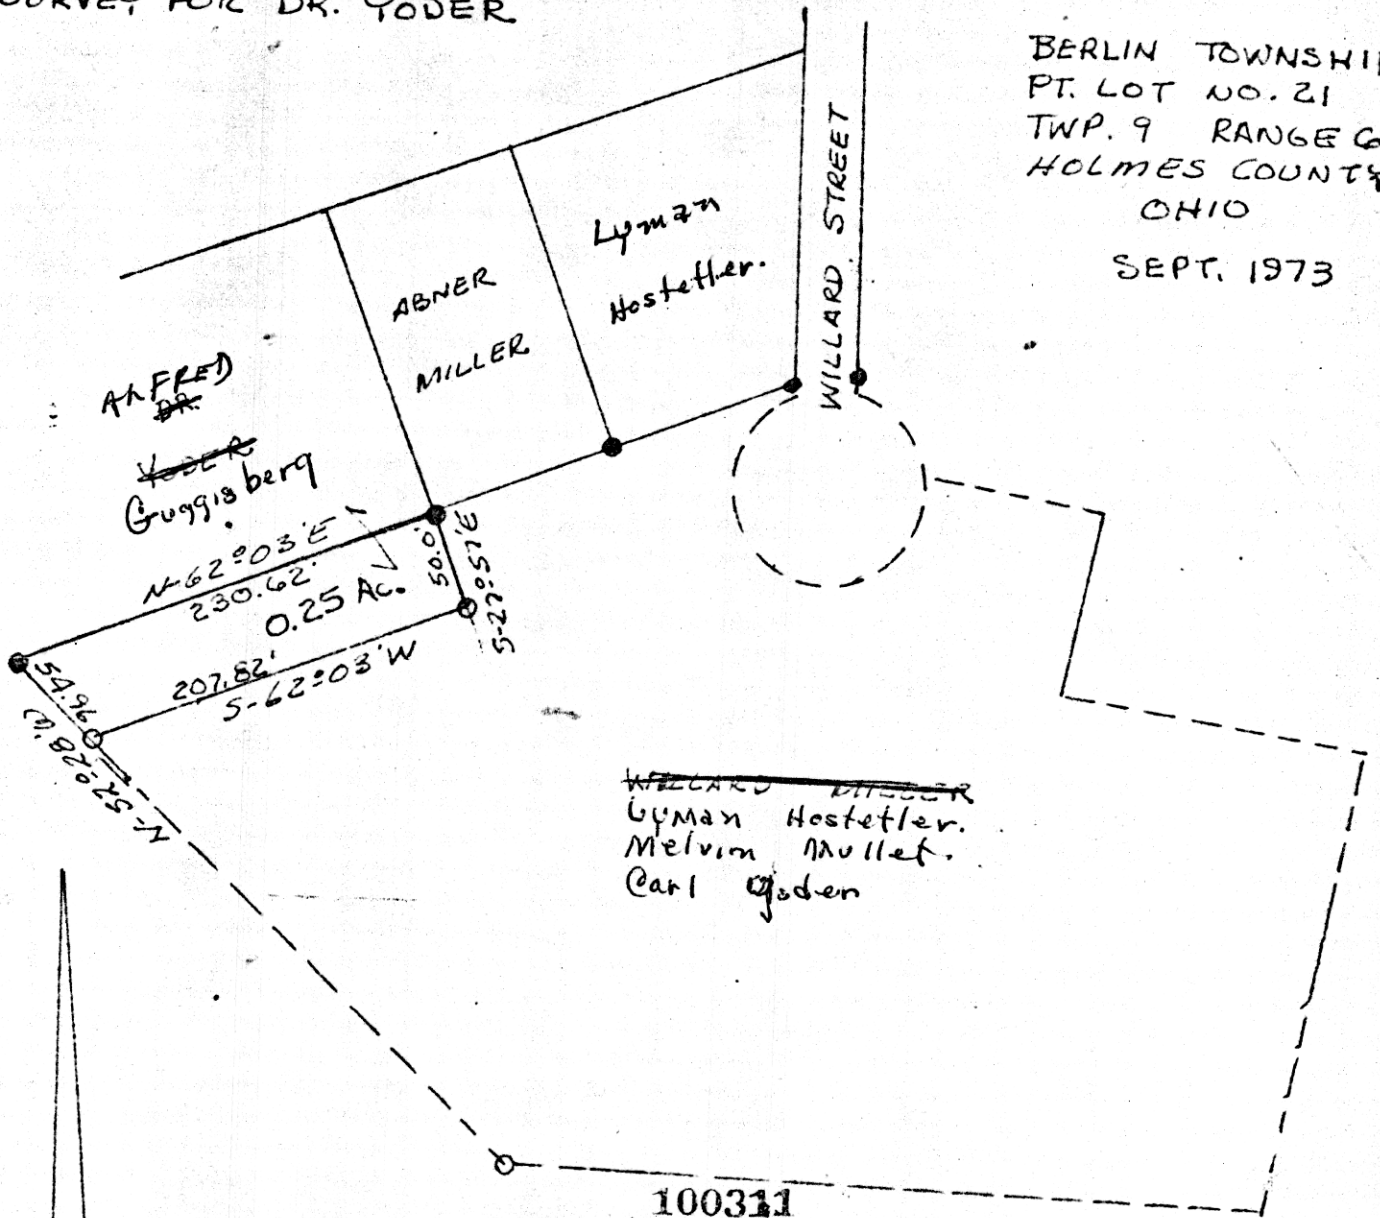 SURVEY FOR DR. YODER
BERLIN TOWNSHIP
PT. LOT NO. 21
TWP. 9 RANGE 6
HOLMES COUNTY
OHIO
SEPT. 1973
WILLARD. STREET
Lyman
Hostetler.
ABNER
MILLER
ALFRED
DR.
YODER
Guggisberg
N-62°03'E
230.62'
0.25 Ac.
50.0'
S-27°57'E
207.82'
S-62°03'W
54.96
N-52°28'W
WILLARD MILLER
Lyman Hostetler.
Melvin Mullet.
Carl
100311